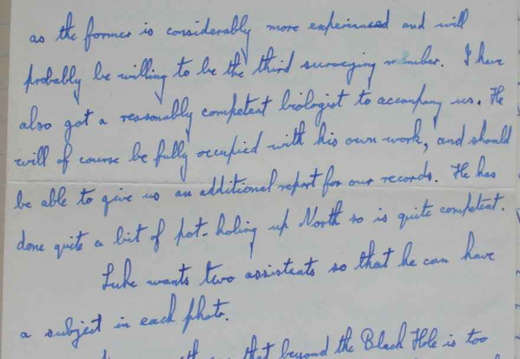 as the former is considerably more experienced and will
probably be willing to be the third surveying member. I have
also got a reasonably competent biologist to accompany us. He
will of course be fully occupied with his own work, and should
be able to give us an additional report for our records. He has
done quite a bit of pot-holing up North so is quite competent.
Luke wants two assistants so that he can have
a subject in each photo.
that beyond the Black Hole is too